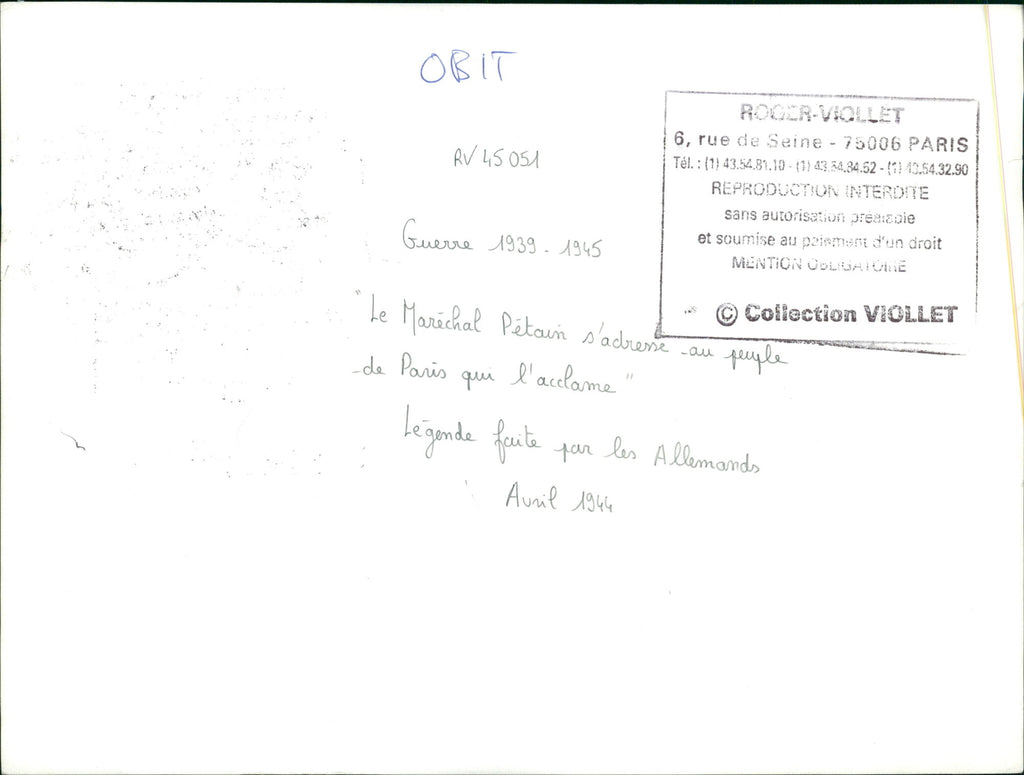 OBIT
ROGER-VIOLLET
6, rue de Seine - 75006 PARIS
Tél. : (1) 43.54.81.10 - (1) 43.54.84.62 - (1) 43.54.32.90
REPRODUCTION INTERDITE
sans autorisation préalable
et soumise au paiement d'un droit
MENTION OBLIGATOIRE
© Collection VIOLLET
RV 45051
Guerre 1939 - 1945
"Le Maréchal Pétain s'adresse au peuple
de Paris qui l'acclame"
Légende faite par les Allemands
Avril 1944